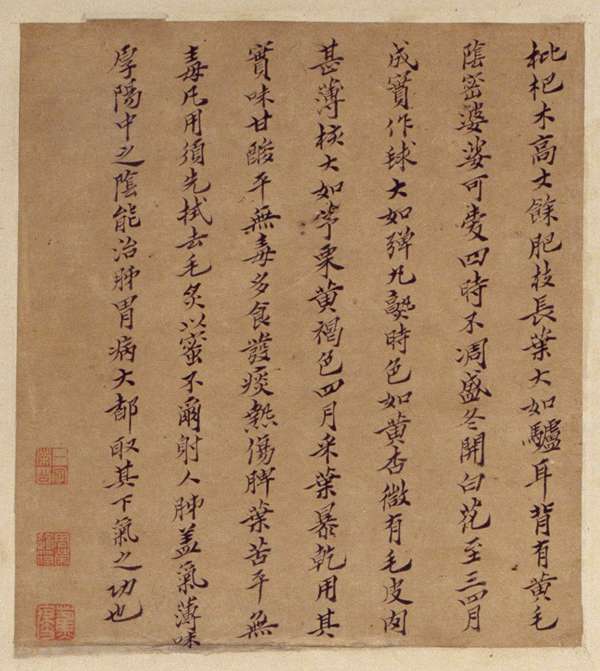 枇杷木高丈餘肥枝長葉大如驢耳背有黃毛
陰密婆娑可愛四時不凋盛冬開白花至三四月
成實作毬大如彈丸熟時色如黃杏微有毛皮肉
甚薄核大如茅栗黃褐色四月采葉暴乾用其
實味甘酸平無毒多食發痰熱傷脾葉苦平無
毒凡用須先拭去毛炙以蜜不爾射人肺蓋氣薄味
厚陽中之陰能治肺胃病大都取其下氣之功也